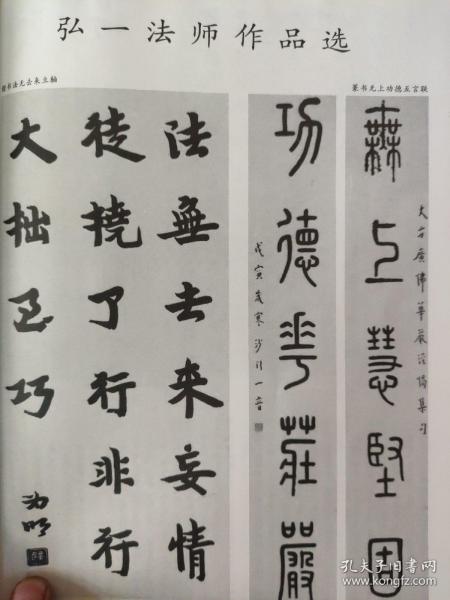 弘一法师作品选
篆书无上功德五言联
楷书法无去来立轴
無上慧堅固
大方廣佛華嚴經偈集句
功德華莊嚴
戊寅歲寒沙门一音
法無去來妄情
徒撓了行非行
大拙 巧
孔夫子旧书网